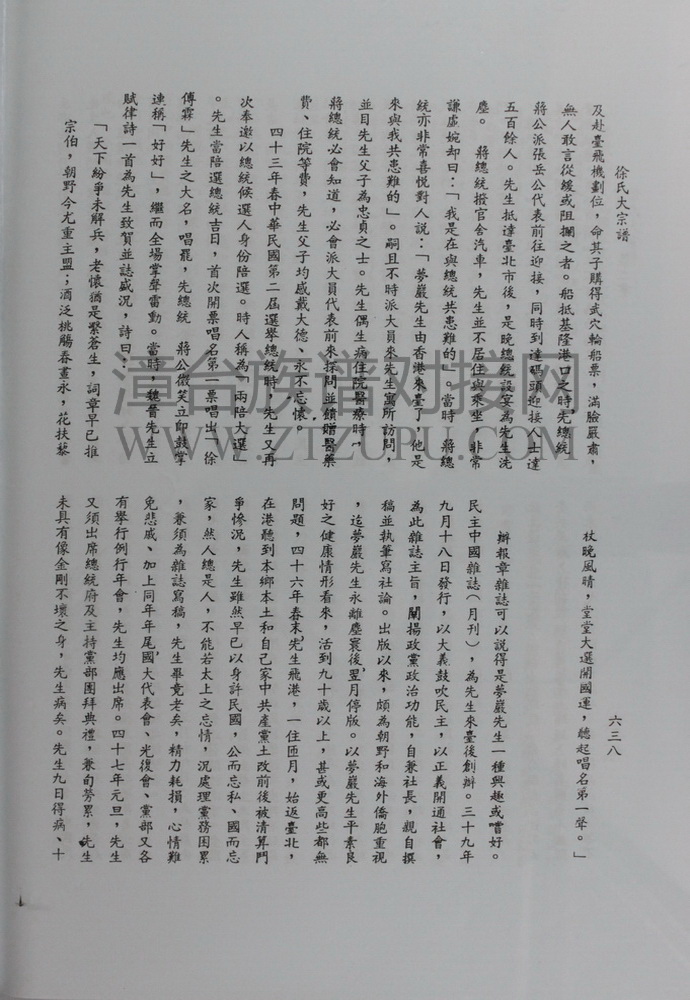 徐氏大宗譜
六三八
及赴臺飛機劃位，命其子購得武穴輪船票，滿臉嚴肅，
無人敢言從緩或阻攔之者。船抵基隆港口之時，先總統
蔣公派張岳公代表前往迎接，同時到達碼頭迎接人士達
五百餘人。先生抵達臺北市後，是晚總統設宴為先生洗
塵。　蔣總統撥官舍汽車，先生並不居住與乘坐，非常
謙虛婉却曰：「我是在與總統共患難的」當時　蔣總
統亦非常喜悅對人說：「夢巖先生由香港來臺了，他是
來與我共患難的」。嗣且不時派大員來先生寓所訪問，
並目先生父子為忠貞之士。先生偶生病住院醫療時，
蔣總統必會知道，必會派大員代表前來探問並饋贈醫藥
費、住院等費，先生父子均感戴大德、永不忘懷。
四十三年春中華民國第二屆選舉總統時，先生又再
次奉邀以總統候選人身份陪選。時人稱為「兩陪大選」
。先生當陪選總統吉日，首次開票唱名第一票唱出「徐
傅霖」先生之大名，唱罷，先總統　蔣公微笑立即鼓掌
連稱「好好」，繼而全場掌聲雷動。當時，魏晉先生立
賦律詩一首為先生致賀並誌盛況，詩曰：
「天下紛爭未解兵，老懷猶是繫蒼生，詞章早已推
宗伯，朝野今尤重主盟；酒泛桃觴春晝永，花扶藜
杖晚風晴，堂堂大選開國運，聽起唱名第一聲。」
辦報章雜誌可以說得是夢巖先生一種興趣或嗜好。
民主中國雜誌（月刊），為先生來臺後創辦。三十九年
九月十八日發行，以大義鼓吹民主，以正義開通社會，
為此雜誌主旨，闡揚政黨政治功能，自兼社長，親自撰
稿並執筆寫社論。出版以來，頗為朝野和海外僑胞重視
，迄夢巖先生永離塵寰後，翌月停版。以夢巖先生平素良
好之健康情形看來，活到九十歲以上，甚或更高些都無
問題，四十六年春末，先生飛港，一住匝月，始返臺北，
在港聽到本鄉本土和自己家中共產黨土改前後被清算鬥
爭慘況，先生雖然早已以身許民國，公而忘私、國而忘
家，然人總是人，不能若太上之忘情，況處理黨務困累
，兼須為雜誌寫稿，先生畢竟老矣，精力耗損，心情難
免悲戚、加上同年年尾，國大代表會、光復會、黨部又各
有舉行例行年會，先生均應出席。四十七年元旦，先生
又須出席總統府及主持黨部團拜典禮，兼旬勞累，先生
未具有像金剛不壞之身，先生病矣。先生九日得病、十